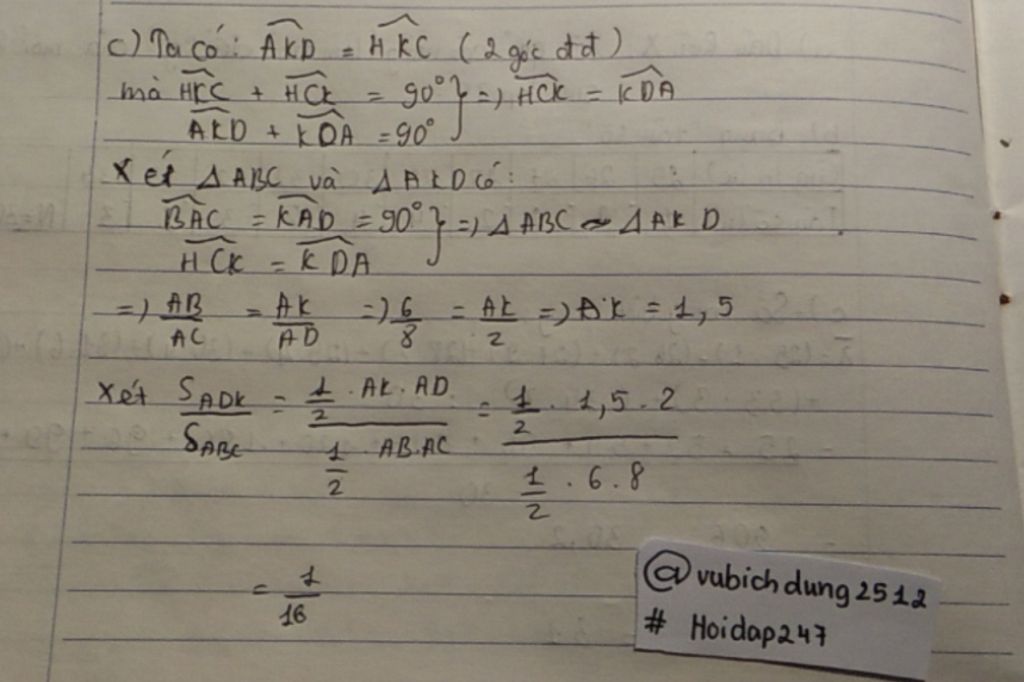 c) Ta có: AKD = HKC (2 góc đđ)
mà HKC + HCK = 90° } => HCK = KDA
AKD + KDA = 90°
Xét Δ ABC và Δ AKD có:
BAC = KAD = 90° } => Δ ABC ~ Δ AKD
HCK = KDA
=> AB/AC = AK/AD => 6/8 = AK/2 => AK = 1,5
Xét S_ADK/S_ABC = (1/2 . AK . AD)/(1/2 . AB.AC) = (1/2 . 1,5 . 2)/(1/2 . 6 . 8)
= 1/16
@vubichdung2512
# Hoidap247